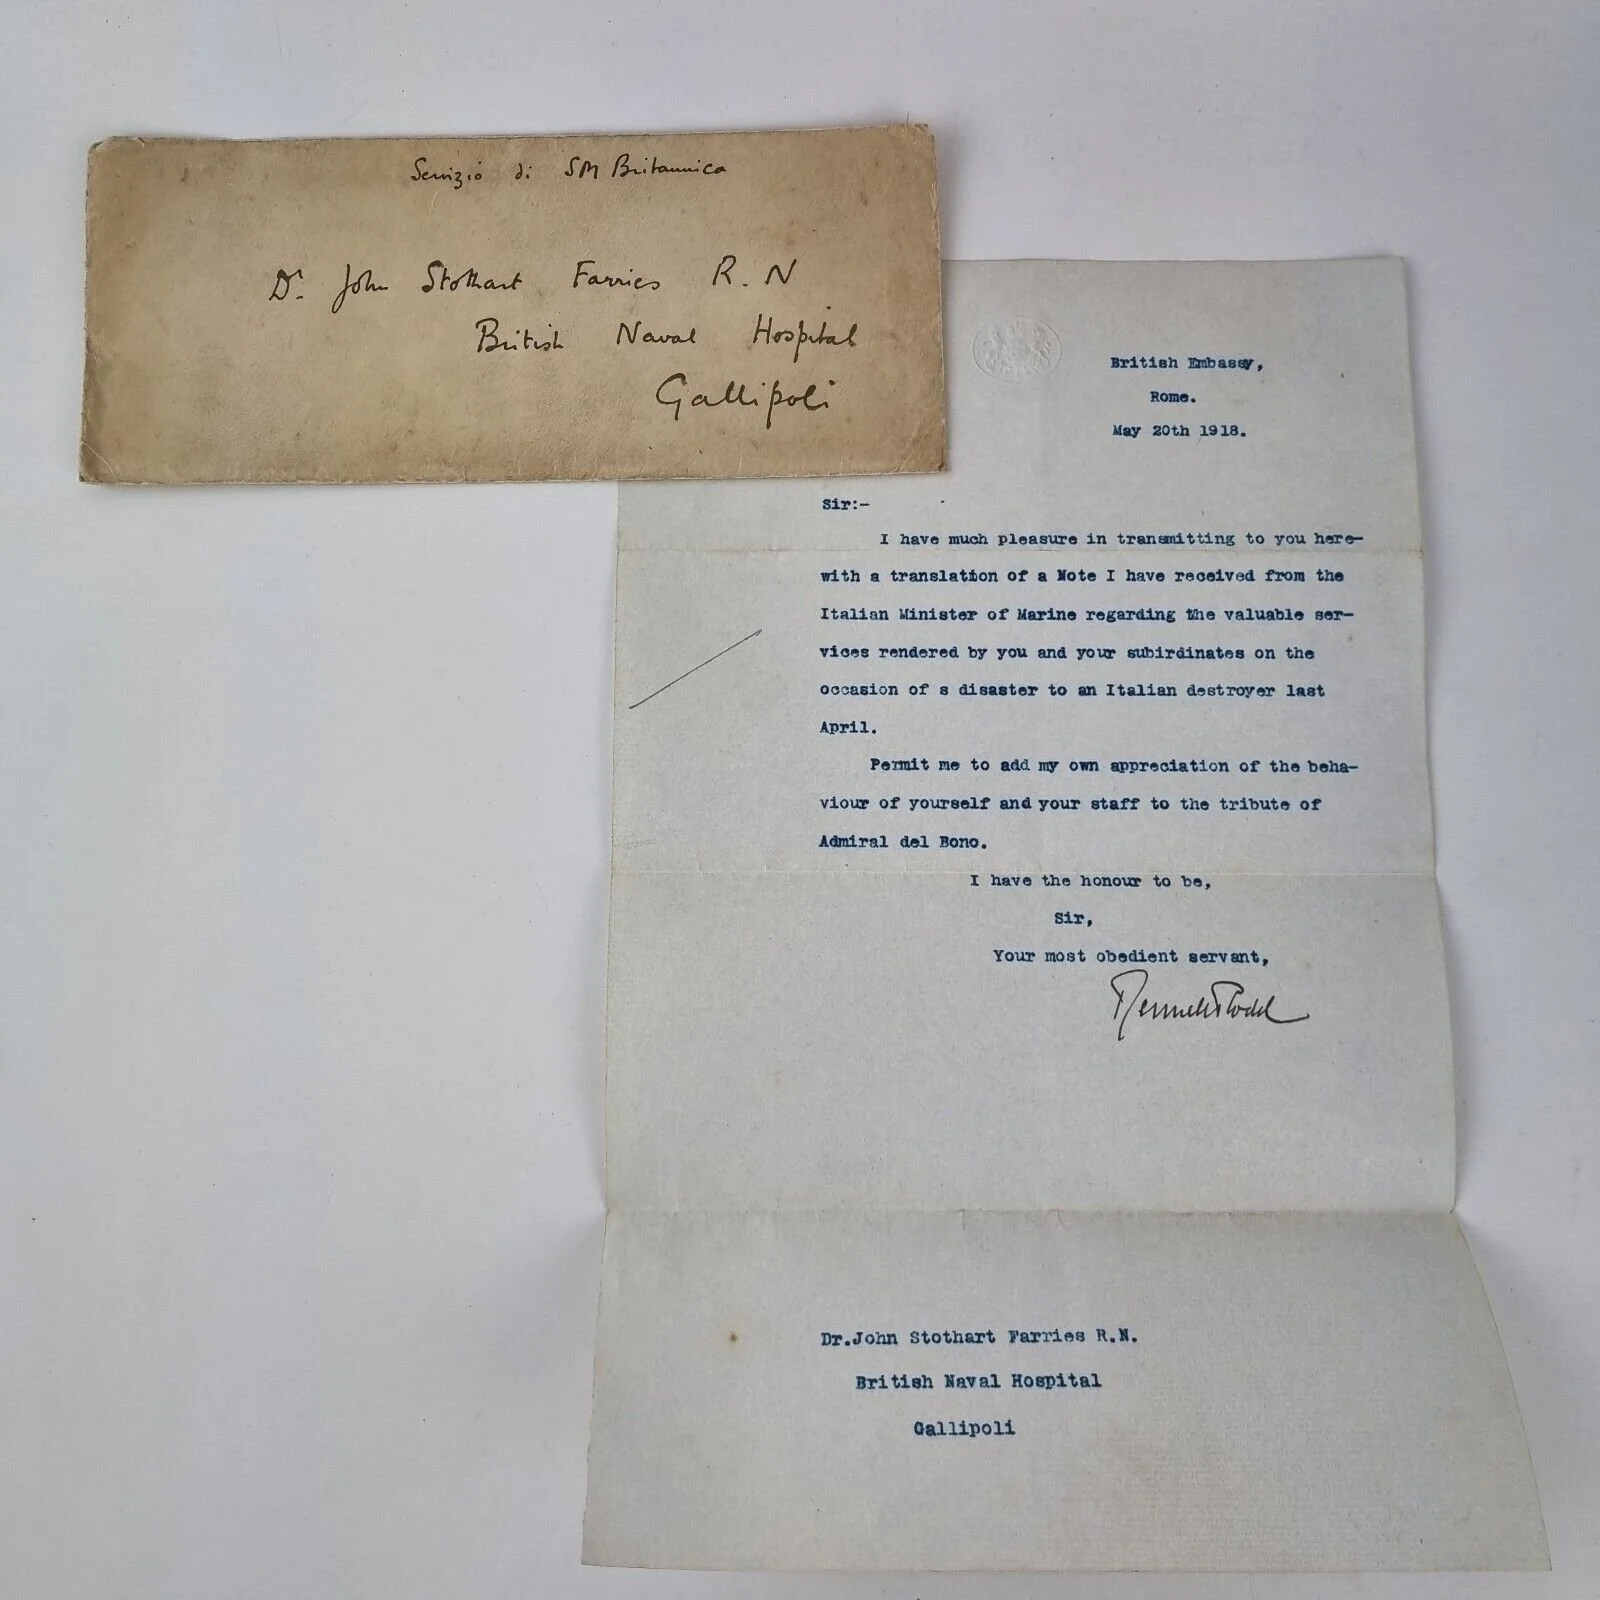 Servizio di SM Britannica
Dr. John Stothart Farries R.N
British Naval Hospital
Gallipoli
British Embassy,
Rome.
May 20th 1918.
Sir:-
I have much pleasure in transmitting to you here-
with a translation of a Note I have received from the
Italian Minister of Marine regarding the valuable ser-
vices rendered by you and your subirdinates on the
occasion of s disaster to an Italian destroyer last
April.
Permit me to add my own appreciation of the beha-
viour of yourself and your staff to the tribute of
Admiral del Bono.
I have the honour to be,
Sir,
Your most obedient servant,
Rennell Rodd
Dr.John Stothart Farries R.N.
British Naval Hospital
Gallipoli